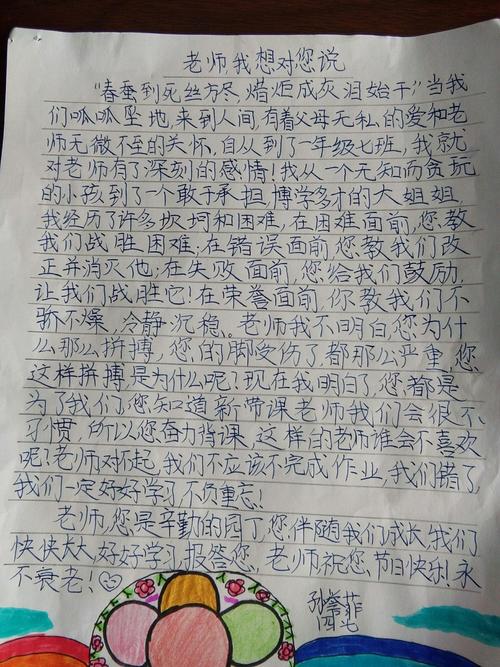 老师我想对您说
“春蚕到死丝方尽,烛炬成灰泪始干”当我
们呱呱坠地,来到人间,有着父母无私的爱和老
师无微不至的关怀,自从到了一年级七班,我就
对老师有了深刻的感情!我从一个无知而贪玩
的小孩到了一个敢于承担,博学多才的大姐姐,
我经历了许多坎坷和困难,在困难面前,您教
我们战胜困难;在错误面前,您教我们改
正并消灭他;在失败面前,您给我们鼓励,
让我们战胜它!在荣誉面前,你教我们不
骄不燥,冷静沉稳。老师我不明白,您为什
么那么拼搏,您的脚受伤了都那么严重,您
这样拼搏是为什么呢?现在我明白了,您都是
为了我们,您知道新带课老师我们会很不
习惯,所以您奋力当课,这样的老师谁会不喜欢
呢?老师对不起,我们不应该不完成作业,我们错了,
我们一定好好学习,不负重忘!
老师,您是辛勤的园丁,您伴随我们成长,我们
快快大大,好好学习,报答您,老师祝您,节日快乐!永
不衰老!
四七